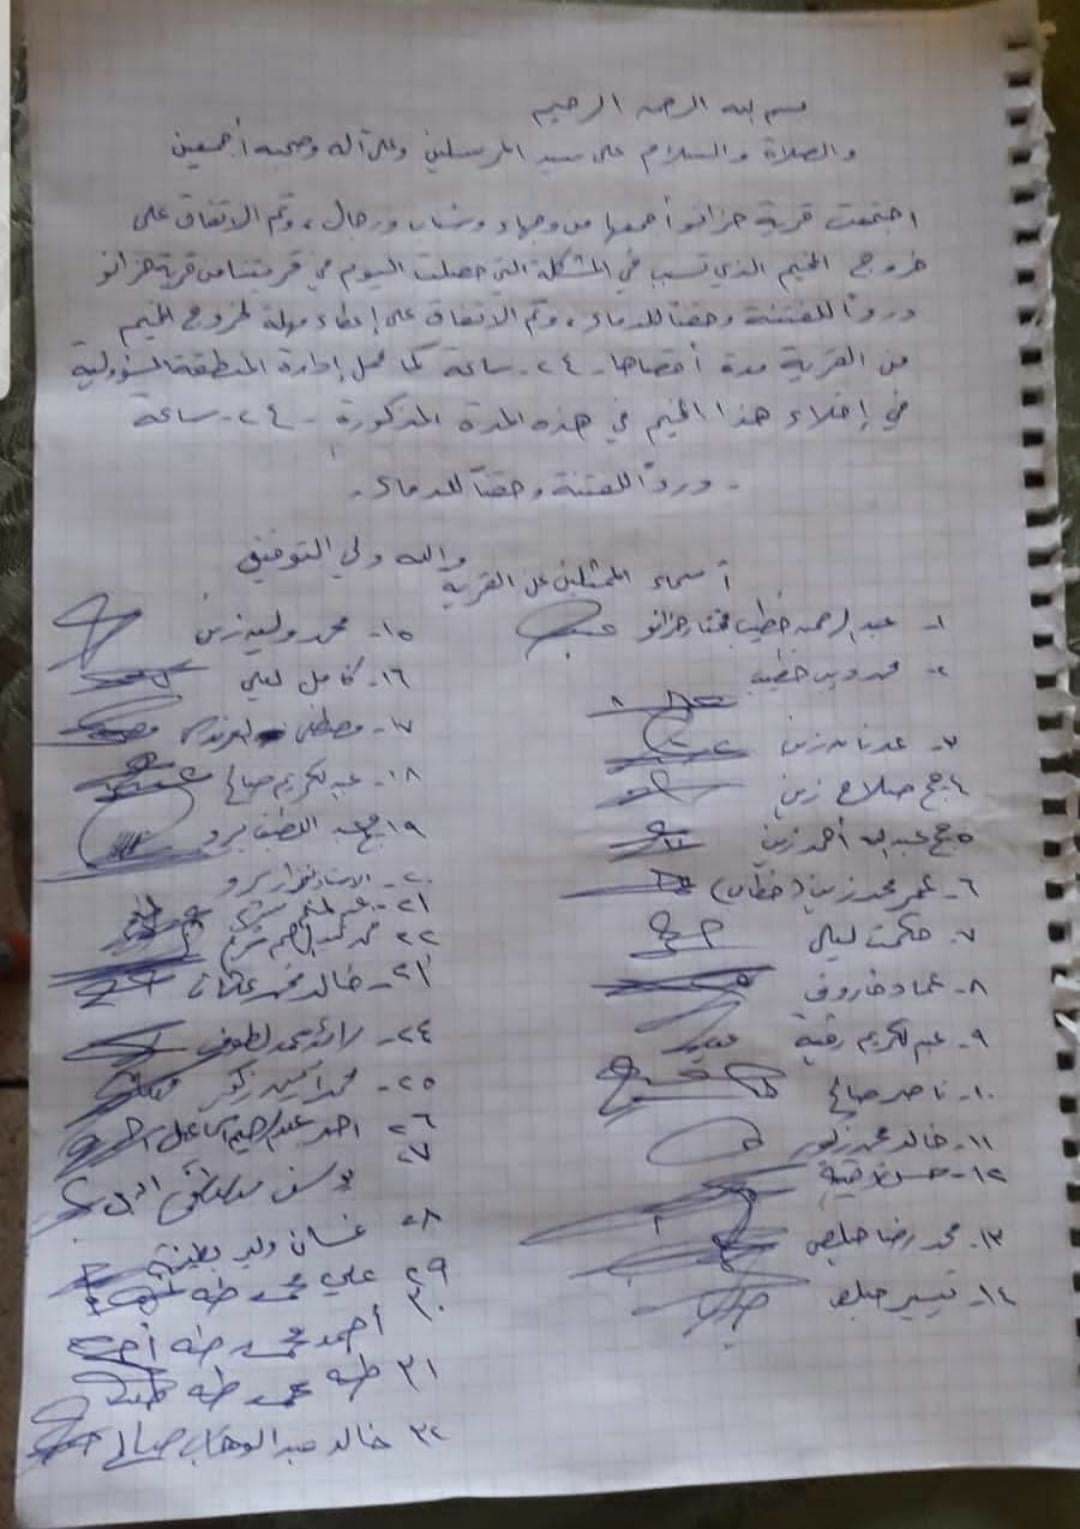 بسم الله الرحمن الرحيم
والصلاة والسلام على سيد المرسلين وعلى آله وصحبه أجمعين
اجتمعت قرية حزانو أجمعها من وجهاء وشباب ورجال، وتم الاتفاق على
خروج المخيم الذي تسبب في المشكلة التي حصلت اليوم في قريتنا من قرية حزانو
درءاً للفتنة وحقناً للدماء، وتم الاتفاق على إعطاء مهلة لخروج المخيم
من القرية مدة أقصاها - ٢٤ - ساعة كما نحمل إدارة المنطقة المسؤولية
في إخلاء هذا المخيم في هذه المدة المذكورة - ٢٤ - ساعة
- درءاً للفتنة وحقناً للدماء -
والله ولي التوفيق
أسماء الممثلين عن القرية
١- عبد الرحمن خطيب مختار حزانو
٢- محمد ديب خطيب
٣- عدنان زين
٤- حج صلاح زين
٥- حج عبد الله أحمد زين
٦- عمر محمد زين (خطاب)
٧- حكمت ليلى
٨- عماد فاروق
٩- عبد الكريم رقية
١٠- ناصر صالح
١١- خالد محمد زكور
١٢- حسن رقية
١٣- محمد رضا
١٤- تيسير
١٥- محمد وليد زين
١٦- كامل ليلى
١٧- مصطفى
١٨- عبد الكريم صالح
١٩- حج عبد اللطيف برو
٢٠- الاستاذ برو
٢١- عبد المنعم
٢٢- محمد
٢٣- خالد محمد
٢٤- رائد محمد لطوف
٢٥- محمد امين زكور
٢٦- احمد عبد الرحيم اسماعيل
٢٧- يوسف مصطفى
٢٨- غسان وليد
٢٩- علي محمد طه
٣٠- أحمد محمد طه أحمد
٣١ طه محمد طه
٣٢ خالد عبد الوهاب صالح